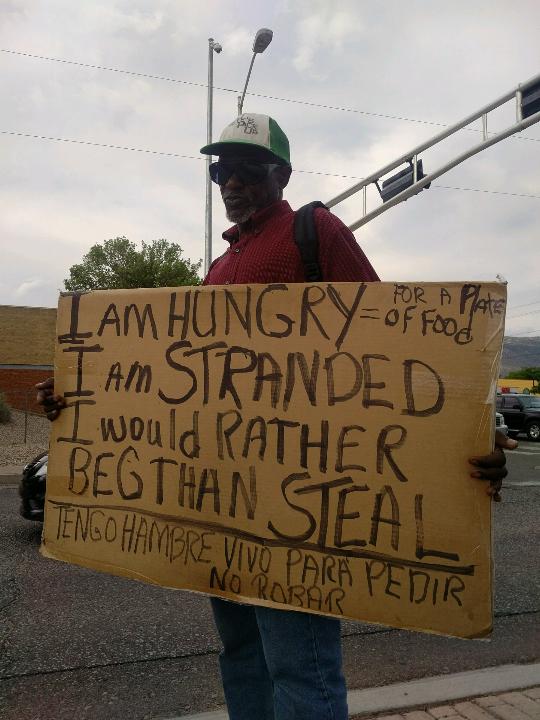 I AM HUNGRY = FOR A Plate
OF FOOd
I am STRANDED
I would RATHER
BEG THAN STEAL
TENGO HAMBRE VIVO PARA PEDIR
NO ROBAR